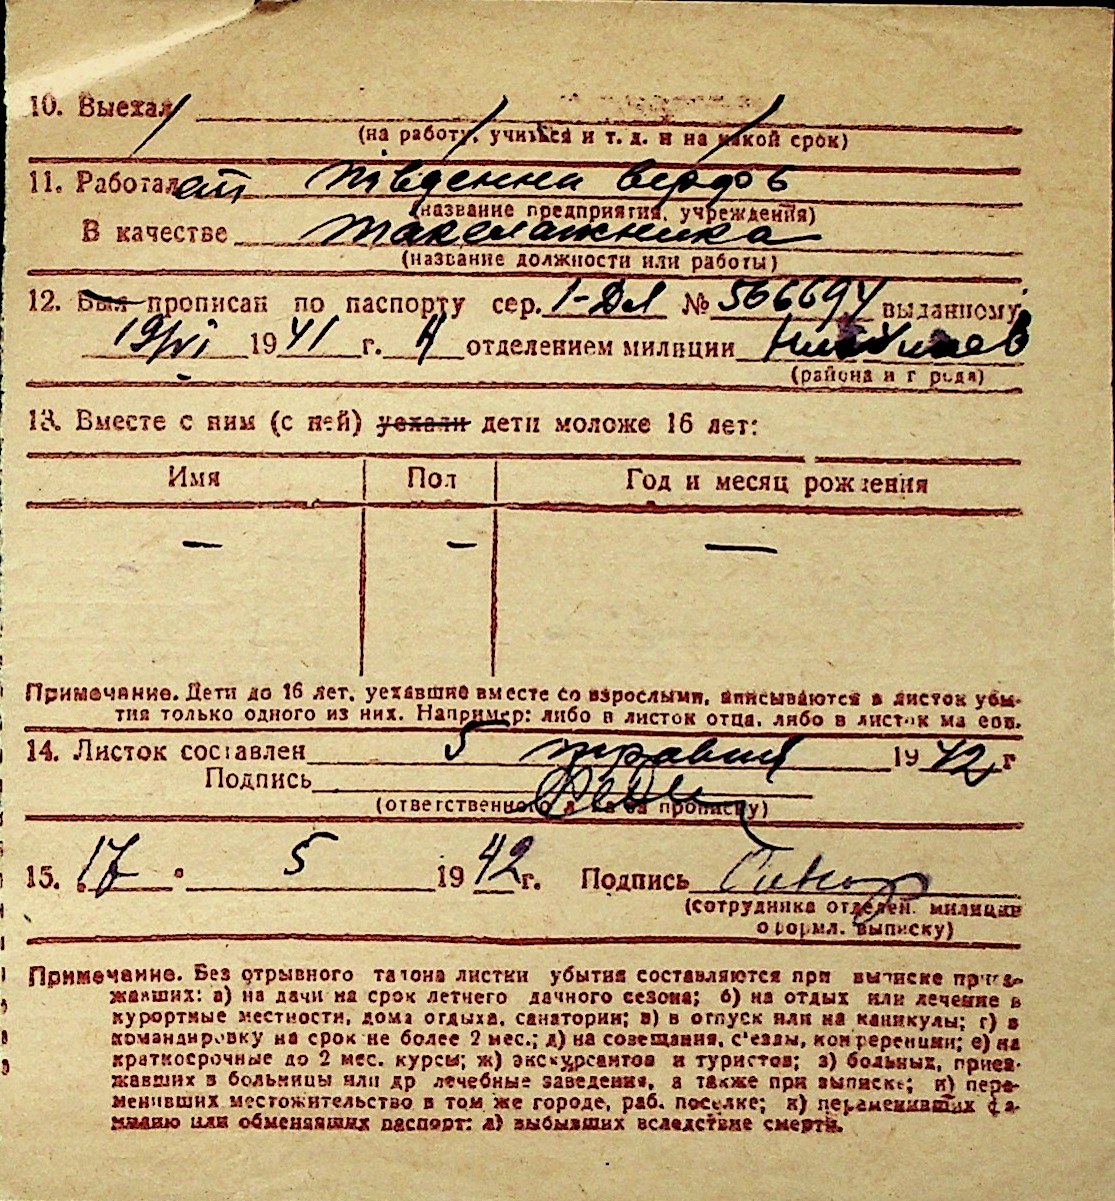 10. Выехал
(на работу, учиться и т. д. и на какой срок)
11. Работает Південна верфь
(название предприятия, учреждения)
В качестве такелажника
(название должности или работы)
12. Был прописан по паспорту сер. 1-ДЛ № 566694 выданному
19/VI 1941 г. 4 отделением милиции Николаев
(района и города)
13. Вместе с ним (с ней) уехали дети моложе 16 лет:
Имя Пол Год и месяц рождения
— — —
Примечание. Дети до 16 лет, уехавшие вместе со взрослыми, вписываются в листок убы-
тия только одного из них. Например: либо в листок отца, либо в листок матери.
14. Листок составлен 5 травня 1942 г
Подпись
(ответственного лица за прописку)
15. 17 • 5 1942 г. Подпись
(сотрудника отделен. милиции
оформл. выписку)
Примечание. Без отрывного талона листки убытия составляются при выписке приез-
жавших: а) на дачи на срок летнего дачного сезона; б) на отдых или лечение в
курортные местности, дома отдыха, санатории; в) в отпуск или на каникулы; г) в
командировку на срок не более 2 мес.; д) на совещания, с'езды, конференции; е) на
краткосрочные до 2 мес. курсы; ж) экскурсантов и туристов; з) больных, приез-
жавших в больницы или др лечебные заведения, а также при выписке; и) пере-
менивших местожительство в том же городе, раб. поселке; к) переменивших фа-
милию или обменявших паспорт: л) выбывших вследствие смерти.